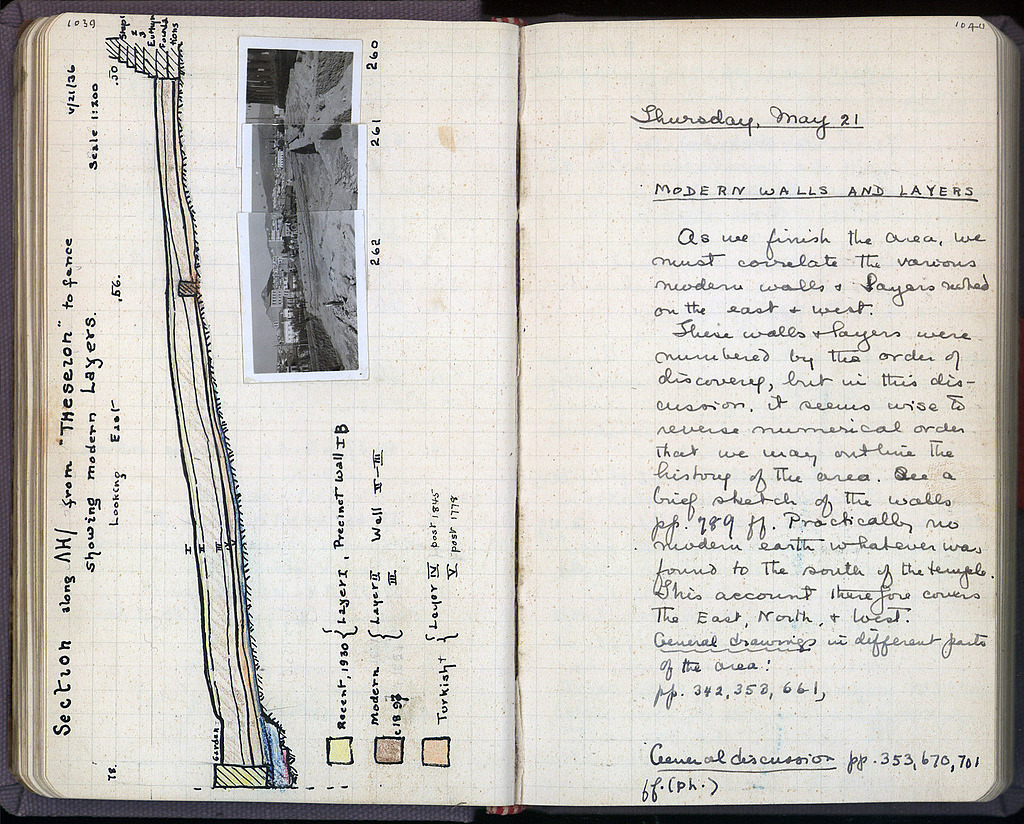 1039
Section along ΛH/ from "Theseion" to fence
showing modern Layers.
Looking East
Scale 1:200
V/21/36
78.
.56.
.50
Steps
Euthyn
Founda
tions
Garden
I
II
III
IV
260
261
262
Recent, 1930 { Layer I, Precinct Wall I B
Modern { Layer II Wall II-III
III
c 1893
Turkish+ { Layer IV post 1845
V post 1778
1040
Thursday, May 21
MODERN WALLS AND LAYERS
As we finish the area, we
must correlate the various
modern walls + layers noted
on the east + west.
These walls + layers were
numbered by the order of
discovery, but in this dis-
cussion, it seems wise to
reverse numerical order
that we may outline the
history of the area. See a
brief sketch of the walls
pp. 989 ff. Practically no
modern earth whatever was
found to the south of the temple.
This account therefore covers
the East, North, + West.
General drawings in different parts
of the area:
pp. 342, 358, 661,
General discussion pp. 353, 670, 701
ff. (ph.)